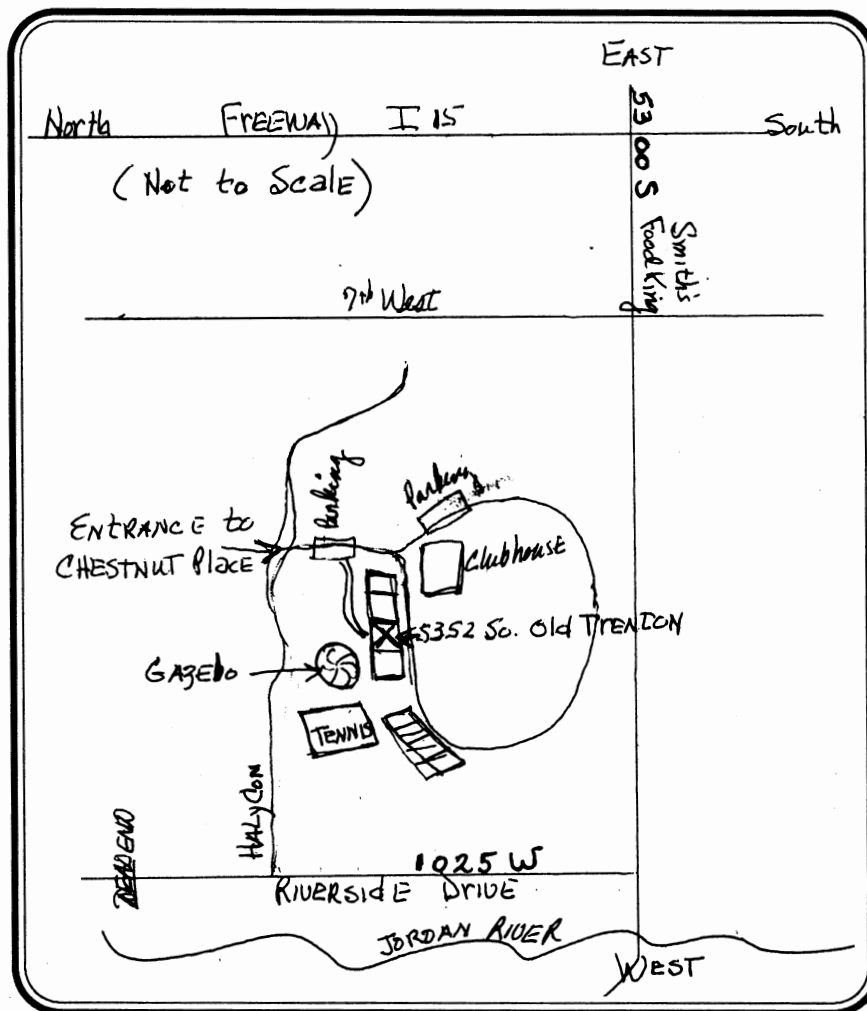 EAST
North FREEWAY I 15 South
5300 S
(Not to Scale)
Smith's
Food King
7th West
Parking
Parking
ENTRANCE to
CHESTNUT Place
Clubhouse
5352 So. Old TRENTON
GAZEbo
TENNIS
HALyCON
DEAD END
1025 W
RIVERSIdE DRIVE
JORDAN RIVER
WEST